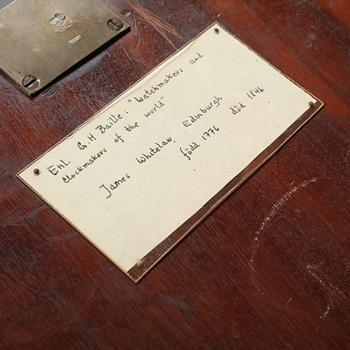 Enl. G.H. Baille: "Watchmakers and
Clockmakers of the world"
James Whitelaw, Edinburgh
född 1776 död 1846